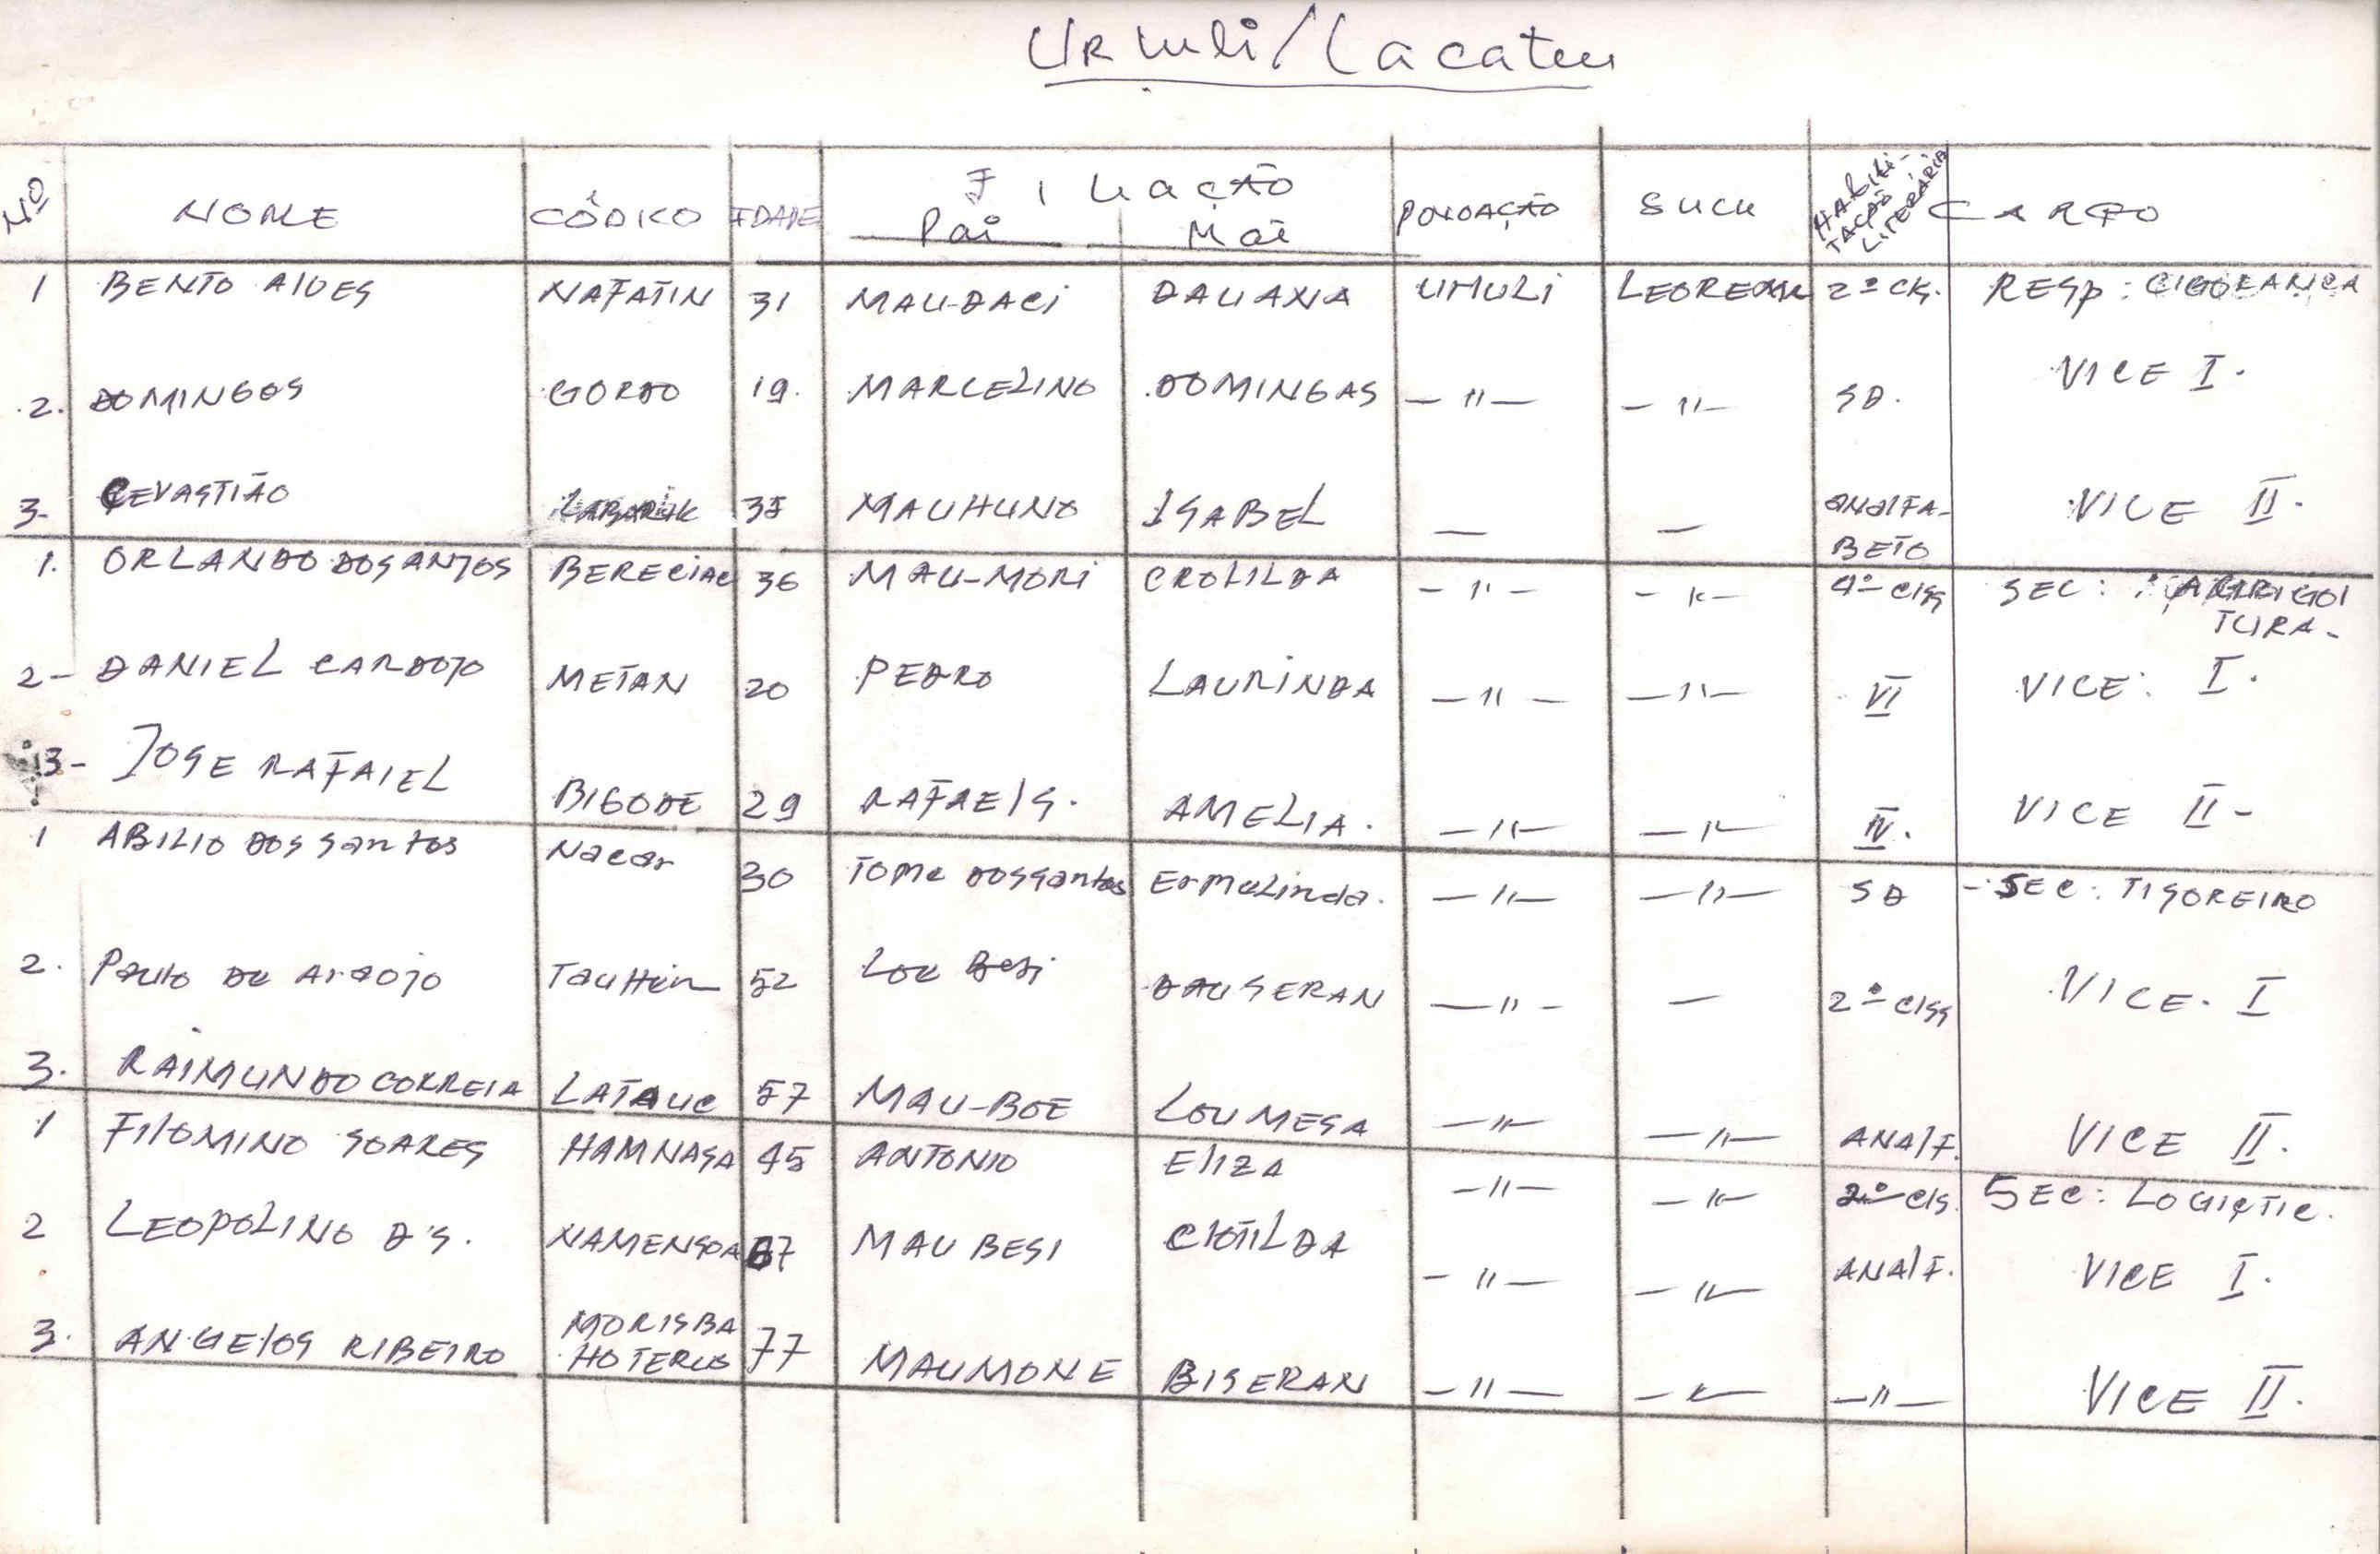 Urhuli/Lacateu
Nº NOME CÔDICO IDADE FILIAÇÃO Pai Mãe POVOAÇÃO SUCU HABILITAÇÃO LITERÁRIA CARGO
1 BENTO AlVES NAFATIN 31 MAU-DACI DAUANA UHULI 2ª Cls. RESP:
2. DOMINGOS GORDO 19. MARCELINO DOMINGAS — " — — " — SD. VICE I.
3- CEVASTIÃO MAUHUNO ISABEL — — ANAlFA-BETO VICE II.
1. ORLANDO DOSANTOS BERECIAC 36 MAU-MORI CROLILDA - " - - " - 4ª Clss SEC: AGRIGOl
TURA-
2- DANIEL CARDOJO METAN 20 PEDRO LAURINDA — " — — " — VI VICE: I.
3- JOSE RAFAIEL BIGODE 29 RAFAElS. AMELIA. — " — — " — IV. VICE II-
1 ABILIO DOS Santos Nacar 30 TOMe DOSSantos ErMeLinda. — " — — " — SD - SEC: TISOREIRO
2. PauLo De Araojo 52 Lou Besi DAUSERAN — " - — 2ª Clss VICE. I
3. RAIMUNDO CORREIA LATAUC 57 MAU-BOE LOUMESA — " — — " — ANAlF. VICE II.
1 FIlOMINO SOARES HAMNASA 45 ANTONIO ElIZA — " — — " — 2ª Cls. SEC: LOGISTIC.
2 LEOPOLINO D'S. NAMENSOA 67 MAU BESI ClOTILDA — " — — " — ANAlF. VICE I.
3. ANGElOS RIBEIRO MORISBA HOTERUS 77 MAUMONE BISERAN — " — — " — — " — VICE II.